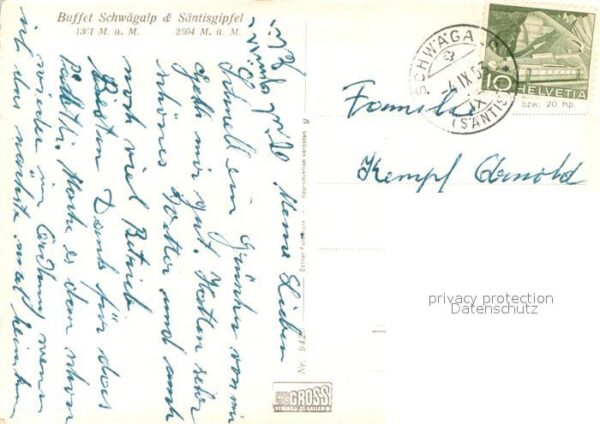 Buffet Schwägalp & Säntisgipfel
1361 M. ü. M. 2504 M. ü. M.
Meine Lieben
Schnell ein von mir
geht mir gut. Hatten sehr
schönes Wetter und auch
noch viel Betrieb.
Besten Dank für das
Päckli. Mache es dann schon
wieder in Ordnung wenn
ich das nächste mal heimkomme
SCHWÄGALP
(SÄNTIS)
10
HELVETIA
bzw. 20 Rp.
Familie
Kempf Arnold
privacy protection
Datenschutz
Nr. 942
Reproduktion verboten
FOTO
GROSS
ST. GALLEN